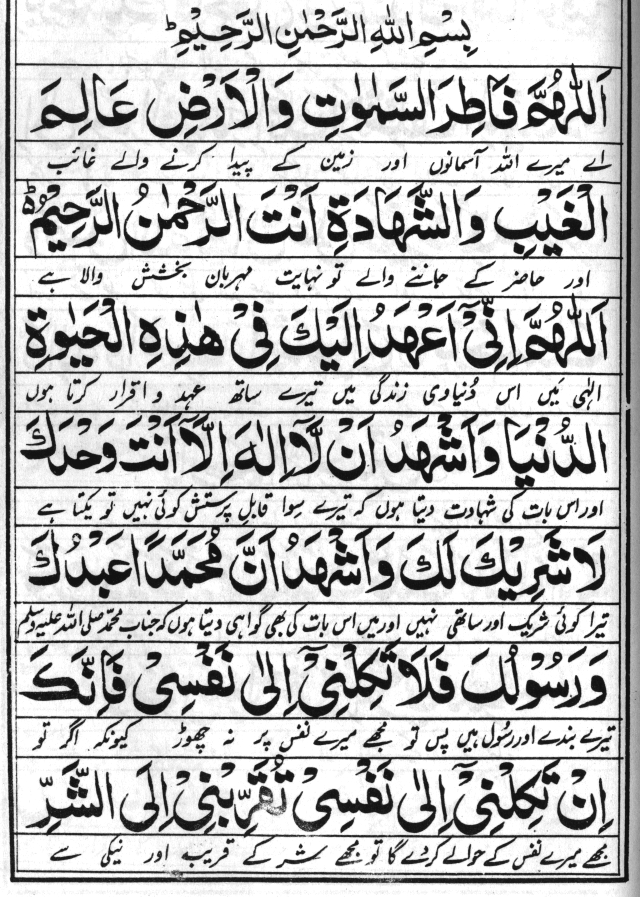 بِسْمِ اللهِ الرَّحْمٰنِ الرَّحِيْمِ ط
اَللّٰهُمَّ فَاطِرَ السَّمٰوٰتِ وَالْاَرْضِ عَالِمَ
اے میرے اللہ آسمانوں اور زمین کے پیدا کرنے والے غائب
الْغَيْبِ وَالشَّهَادَةِ اَنْتَ الرَّحْمٰنُ الرَّحِيْمُ ط
اور حاضر کے جاننے والے تو نہایت مہربان بخشش والا ہے
اَللّٰهُمَّ اِنِّيْٓ اَعْهَدُ اِلَيْكَ فِيْ هٰذِهِ الْحَيٰوةِ
الہٰی میں اس دُنیاوی زندگی میں تیرے ساتھ عہد و اقرار کرتا ہوں
الدُّنْيَا وَاَشْهَدُ اَنْ لَّآ اِلٰهَ اِلَّآ اَنْتَ وَحْدَكَ
اور اس بات کی شہادت دیتا ہوں کہ تیرے سوا قابلِ پرستش کوئی نہیں تو یکتا ہے
لَا شَرِيْكَ لَكَ وَاَشْهَدُ اَنَّ مُحَمَّدًا عَبْدُكَ
تیرا کوئی شریک اور ساتھی نہیں اور میں اس بات کی بھی گواہی دیتا ہوں کہ جناب محمد صلی اللہ علیہ وسلم
وَرَسُوْلُكَ فَلَا تَكِلْنِيْٓ اِلٰى نَفْسِيْ فَاِنَّكَ
تیرے بندے اور رسُول ہیں پس تو مجھے میرے نفس پر نہ چھوڑ کیونکہ اگر تو
اِنْ تَكِلْنِيْٓ اِلٰى نَفْسِيْ تُقَرِّبْنِيْ اِلَى الشَّرِّ
مجھے میرے نفس کے حوالے کر دے گا تو مجھے شر کے قریب اور نیکی سے